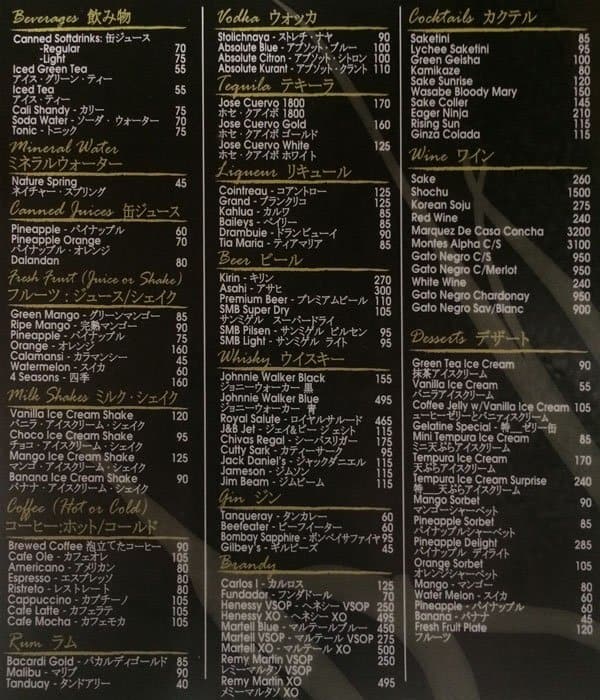 Beverages 飲み物
Canned Softdrinks: 缶ジュース
-Regular 70
-Light 75
Iced Green Tea 55
アイス・グリーン・ティー
Iced Tea 55
アイス・ティー
Cali Shandy - カリー 75
Soda Water - ソーダ・ウォーター 70
Tonic - トニック 75
Mineral Water
ミネラルウォーター
Nature Spring 45
ネイチャー・スプリング
Canned Juices 缶ジュース
Pineapple - パイナップル 60
Pineapple Orange 70
パイナップル・オレンジ
Dalandan 80
Fresh Fruit (Juice or Shake)
フルーツ:ジュース/シェイク
Green Mango - グリーンマンゴー 85
Ripe Mango - 完熟マンゴー 90
Pineapple - パイナップル 75
Orange - オレンジ 160
Calamansi - カラマンシー 45
Watermelon - スイカ 60
4 Seasons - 四季 160
Milk Shakes ミルク・シェイク
Vanilla Ice Cream Shake 120
バニラ・アイスクリーム・シェイク
Choco Ice Cream Shake 95
チョコ・アイスクリーム・シェイク
Mango Ice Cream Shake 125
マンゴ・アイスクリーム・シェイク
Banana Ice Cream Shake 90
バナナ・アイスクリーム・シェイク
Coffee (Hot or Cold)
コーヒー:ホット/コールド
Brewed Coffee 泡立てたコーヒー 90
Cafe Ole - カフェオレ 105
Americano - アメリカン 80
Espresso - エスプレッソ 80
Ristreto - レストレート 80
Cappuccino - カプチーノ 105
Cafe Latte - カフェラテ 105
Cafe Mocha - カフェモカ 105
Rum ラム
Bacardi Gold - バカルディゴールド 85
Malibu - マリブ 90
Tanduay - タンドアリー 40
Vodka ウォッカ
Stolichnaya - ストレチ・ナヤ 90
Absolute Blue - アブソット・ブルー 100
Absolute Citron - アブソット・シトロン 100
Absolute Kurant - アブソット・クラント 110
Tequila テキーラ
Jose Cuervo 1800 170
ホセ・クアイボ 1800
Jose Cuervo Gold 160
ホセ・クアイボ ゴールド
Jose Cuervo White 125
ホセ・クアイボ ホワイト
Liqueur リキュール
Cointreau - コアントロー 125
Grand - ブランクリコ 125
Kahlua - カルワ 85
Baileys - ベイリー 85
Drambuie - ドランビューイ 90
Tia Maria - ティアマリア 85
Beer ビール
Kirin - キリン 270
Asahi - アサヒ 300
Premium Beer - プレミアムビール 110
SMB Super Dry 105
サンミゲル スーパードライ
SMB Pilsen - サンミゲル ピルセン 95
SMB Light - サンミゲル ライト 95
Whisky ウイスキー
Johnnie Walker Black 155
ジョニーウォーカー 黒
Johnnie Walker Blue 495
ジョニーウォーカー 青
Royal Salute - ロイヤルサルード 465
J&B Jet - ジェイ&ビー ジェット 115
Chivas Regal - シーバスリガー 175
Cutty Sark - カティーサーク 95
Jack Daniel's - ジャックダニエル 115
Jameson - ジムソン 115
Jim Beam - ジムビーム 115
Gin ジン
Tanqueray - タンカレー 60
Beefeater - ビーフイーター 60
Bombay Sapphire - ボンベイサファイヤ 95
Gilbey's - ギルビーズ 45
Brandy
Carlos I - カルロス 125
Fundador - フンダドール 70
Henessy VSOP - ヘネシー VSOP 250
Henessy XO - ヘネシー XO 495
Martell Blue - マルテールブルー 450
Martell VSOP - マルテール VSOP 275
Martell XO - マルテール XO 500
Remy Martin VSOP 250
レミーマルタン VSOP
Remy Martin XO 495
メミーマルタン XO
Cocktails カクテル
Saketini 85
Lychee Saketini 95
Green Geisha 100
Kamikaze 80
Sake Sunrise 120
Wasabe Bloody Mary 150
Sake Coller 145
Eager Ninja 210
Rising Sun 115
Ginza Colada 115
Wine ワイン
Sake 260
Shochu 1500
Korean Soju 275
Red Wine 240
Marquez De Casa Concha 3200
Montes Alpha C/S 3100
Gato Negro C/S 950
Gato Negro C/Merlot 950
White Wine 240
Gato Negro Chardonay 950
Gato Negro Sav/Blanc 900
Desserts デザート
Green Tea Ice Cream 90
抹茶アイスクリーム
Vanilla Ice Cream 55
バニラアイスクリーム
Coffee Jelly w/Vanilla Ice Cream 105
コーヒーゼリーとバニラアイスクリーム
Gelatine Special - 特 ゼリー缶
Mini Tempura Ice Cream 85
ミニ天ぷらアイスクリーム
Tempura Ice Cream 170
天ぷらアイスクリーム
Tempura Ice Cream Surprise 240
特 天ぷらアイスクリーム
Mango Sorbet 90
マンゴーシャーベット
Pineapple Sorbet 85
パイナップルシャーベット
Pineapple Delight 285
パイナップル ディライト
Orange Sorbet 105
オレンジシャーベット
Mango - マンゴー 80
Water Melon - スイカ 60
Pineapple - パイナップル 60
Banana - バナナ 45
Fresh Fruit Plate 120
フルーツ